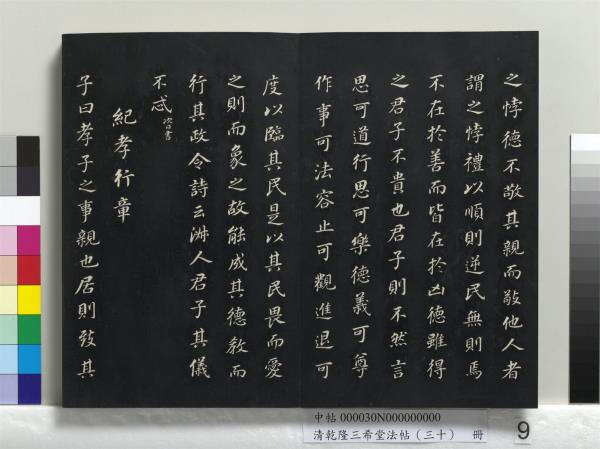 之悖德不敬其親而敬他人者
謂之悖禮以順則逆民無則焉
不在於善而皆在於凶德雖得
之君子不貴也君子則不然言
思可道行思可樂德義可尊
作事可法容止可觀進退可
度以臨其民是以其民畏而愛
之則而象之故能成其德教而
行其政令詩云淑人君子其儀
不忒 次日書
紀孝行章
子曰孝子之事親也居則致其
中帖 000030N000000000
清乾隆三希堂法帖(三十) 冊
9